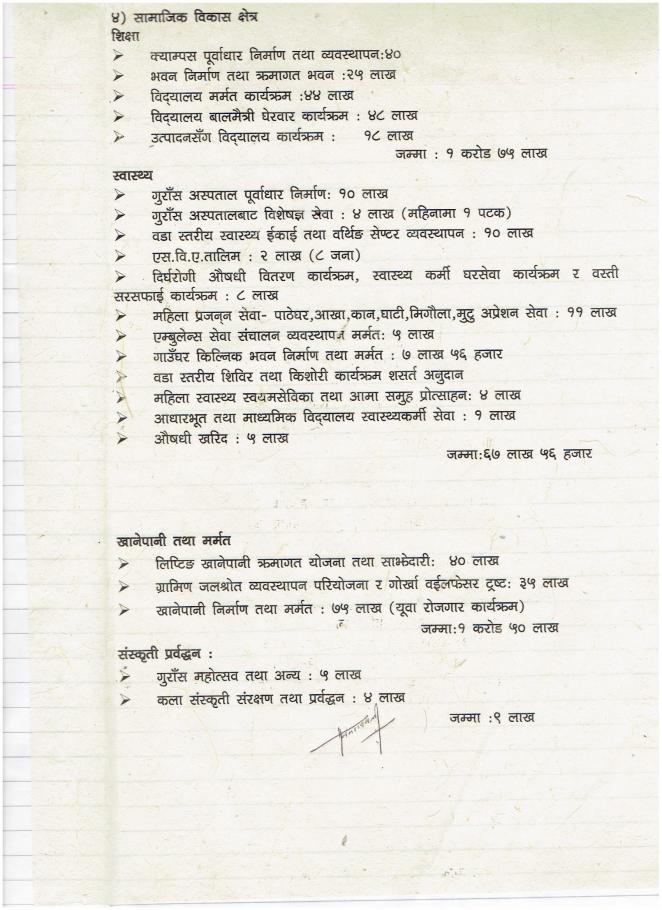 ४) सामाजिक विकास क्षेत्र
शिक्षा
➢ क्याम्पस पूर्वाधार निर्माण तथा व्यवस्थापन:४०
➢ भवन निर्माण तथा क्रमागत भवन :२५ लाख
➢ विद्यालय मर्मत कार्यक्रम :४४ लाख
➢ विद्यालय बालमैत्री घेरवार कार्यक्रम : ४८ लाख
➢ उत्पादनसँग विद्यालय कार्यक्रम : १८ लाख
जम्मा : १ करोड ७५ लाख
स्वास्थ्य
➢ गुराँस अस्पताल पूर्वाधार निर्माण: १० लाख
➢ गुराँस अस्पतालबाट विशेषज्ञ सेवा : ४ लाख (महिनामा १ पटक)
➢ वडा स्तरीय स्वास्थ्य ईकाई तथा वर्थिङ सेण्टर व्यवस्थापन : १० लाख
➢ एस.वि.ए.तालिम : २ लाख (८ जना)
➢ दिर्घरोगी औषधी वितरण कार्यक्रम, स्वास्थ्य कर्मी घरसेवा कार्यक्रम र वस्ती
सरसफाई कार्यक्रम : ८ लाख
➢ महिला प्रजन्न सेवा- पाठेघर,आखा,कान,घाटी,मिगौला,मुटु अप्रेशन सेवा : ११ लाख
➢ एम्बुलेन्स सेवा संचालन व्यवस्थापन मर्मत: ५ लाख
➢ गाउँघर किल्निक भवन निर्माण तथा मर्मत : ७ लाख ५६ हजार
➢ वडा स्तरीय शिविर तथा किशोरी कार्यक्रम शसर्त अनुदान
➢ महिला स्वास्थ्य स्वयमसेविका तथा आमा समुह प्रोत्साहन: ४ लाख
➢ आधारभूत तथा माध्यमिक विद्यालय स्वास्थ्यकर्मी सेवा : १ लाख
➢ औषधी खरिद : ५ लाख
जम्मा:६७ लाख ५६ हजार
खानेपानी तथा मर्मत
➢ लिफ्टिङ खानेपानी क्रमागत योजना तथा साझेदारी: ४० लाख
➢ ग्रामिण जलश्रोत व्यवस्थापन परियोजना र गोर्खा वईलफेसर ट्रष्ट: ३५ लाख
➢ खानेपानी निर्माण तथा मर्मत : ७५ लाख (यूवा रोजगार कार्यक्रम)
जम्मा:१ करोड ५० लाख
संस्कृती प्रर्वद्धन :
➢ गुराँस महोत्सव तथा अन्य : ५ लाख
➢ कला संस्कृती संरक्षण तथा प्रर्वद्धन : ४ लाख
जम्मा :९ लाख